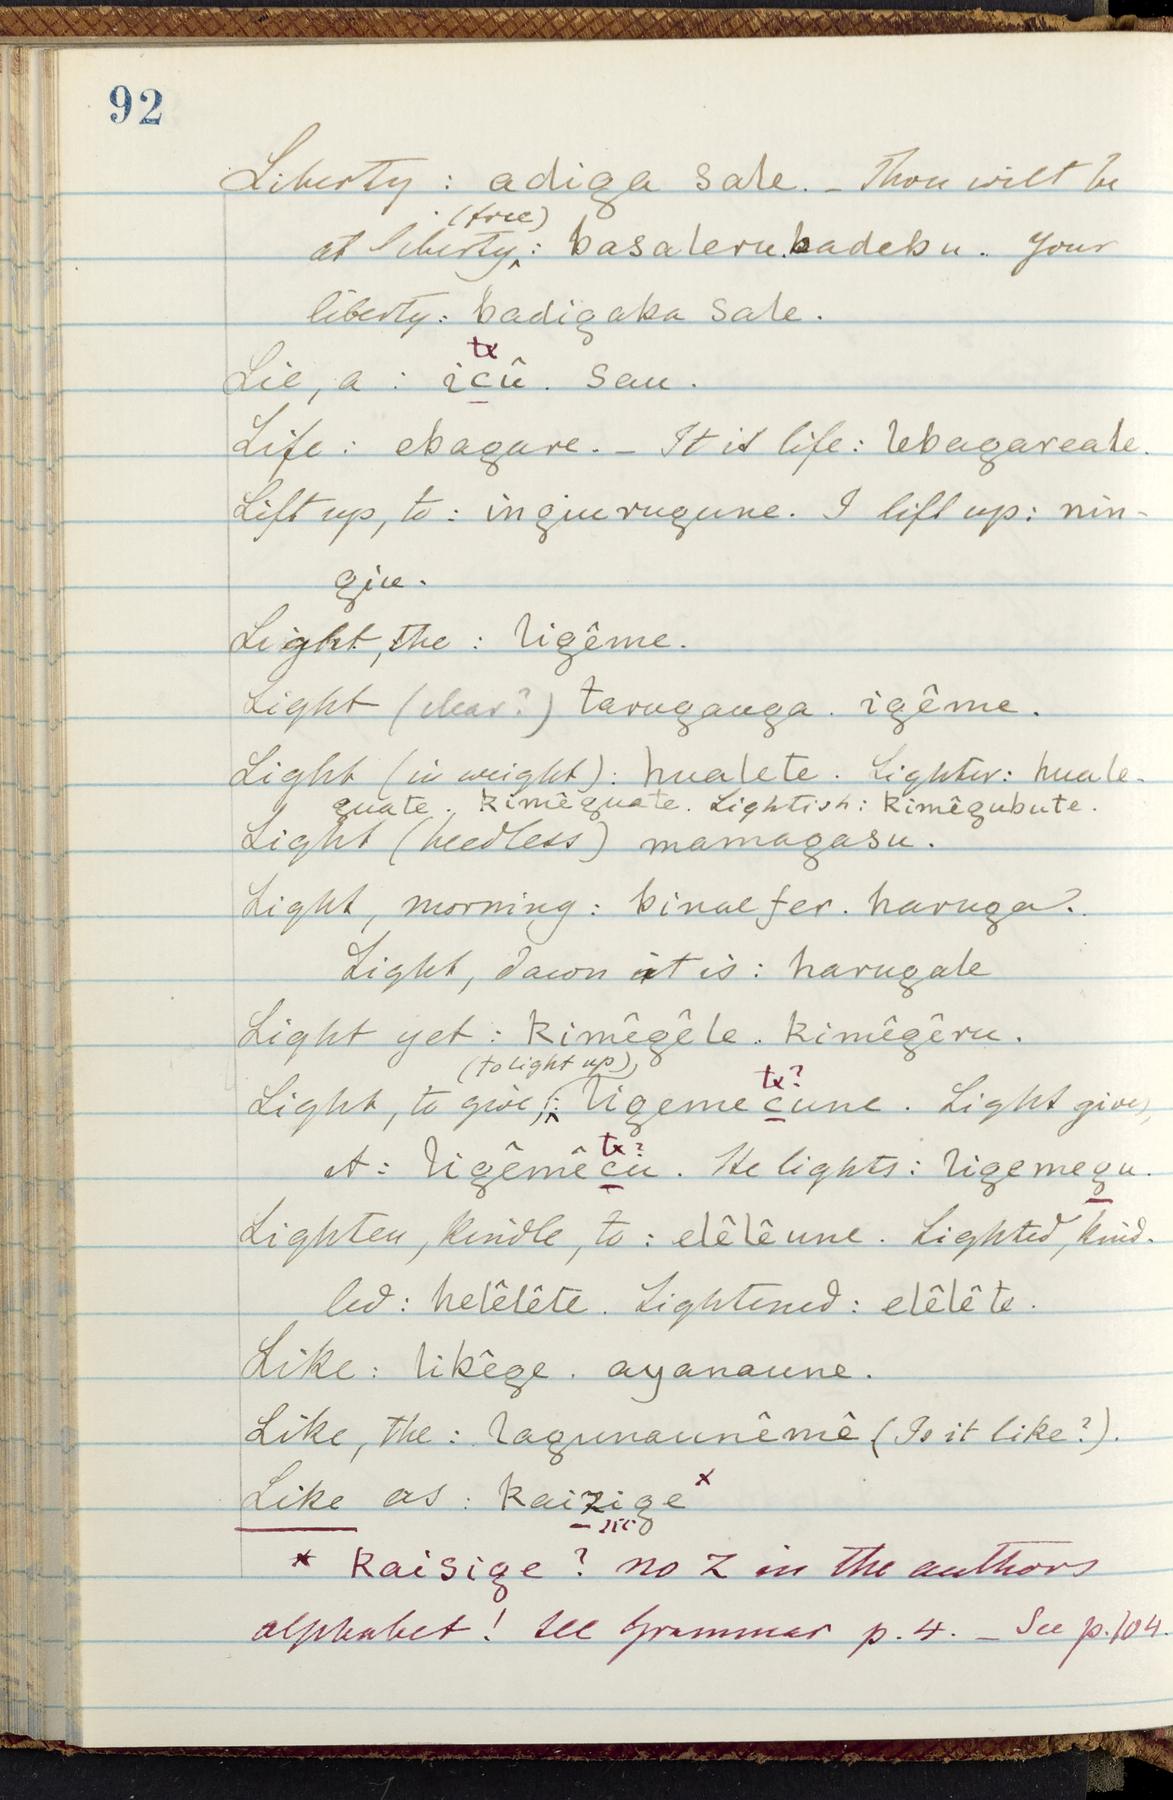 92
Liberty : adiga sale. – Thou wilt be
(free)
at liberty ^ : basaleru badebu. Your
liberty : badigaka sale.
tx
Lie, a : icû. sau.
Life : ebagare. – It is life : lebagareale.
Lift up, to : ingiurugune. I lift up : nin-
giu.
Light, the : ligême.
Light (clear?) taruganga. igême.
Light (in weight) : hualete. Lighter : huale-
guate. kimêguate. Lightish : kimêgubute.
Light (heedless) mamagasu.
Light, morning : binaefer. haruga.
Light, dawn it is : harugale
Light yet : kimêgêle. kimêgêru.
(to light up)
tx?
Light, to give, ^ : ligemecune. Light gives,
tx?
it : ligêmêcu. He lights : ligemegu.
Lighten, kindle, to : elêlêune. Lighted, kind-
led : helêlête. Lightened : elêlête.
Like : likêge. ayanaune.
Like, the : lagunaunêmê (Is it like?).
Like as : kaizige x
sic
* kaisige? no z in the authors
alphabet! see Grammar p. 4. – See p. 104.